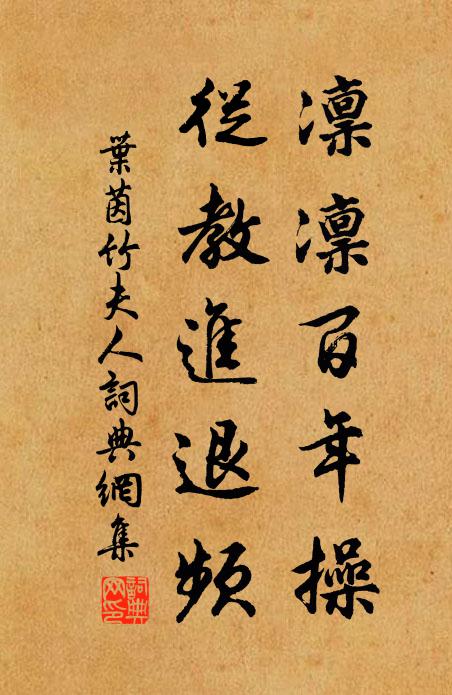 凛凛百年操
從教進退頻
葉茵竹夫人詞典網集
詞典網印